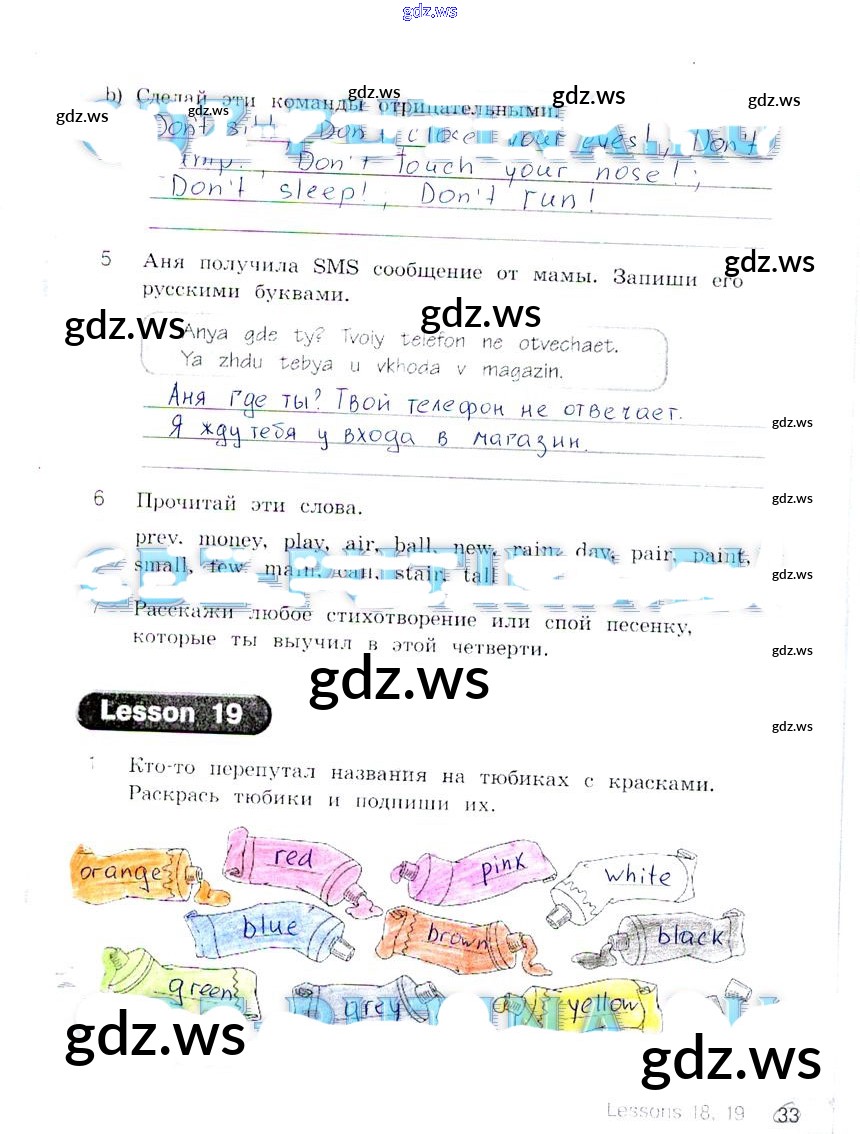 gdz.ws
b) Сделай эти команды отрицательными.
gdz.ws gdz.ws gdz.ws gdz.ws gdz.ws
Don't sit!, Don't close your eyes!, Don't
jump!, Don't touch your nose!;
Don't sleep!; Don't run!
5 Аня получила SMS сообщение от мамы. Запиши его
gdz.ws
русскими буквами.
gdz.ws gdz.ws
Anya gde ty? Tvoiy telefon ne otvechaet.
Ya zhdu tebya u vkhoda v magazin.
Аня где ты? Твой телефон не отвечает.
gdz.ws
Я жду тебя у входа в магазин.
6 Прочитай эти слова.
gdz.ws
prey, money, play, air, ball, new, rain, day, pair, paint,
small, few, main, call, stair, tall
gdz.ws
7 Расскажи любое стихотворение или спой песенку,
которые ты выучил в этой четверти.
gdz.ws
gdz.ws
Lesson 19
gdz.ws
1 Кто-то перепутал названия на тюбиках с красками.
Раскрась тюбики и подпиши их.
orange red pink white
blue brown black
green grey yellow
gdz.ws
gdz.ws
Lessons 18, 19 33